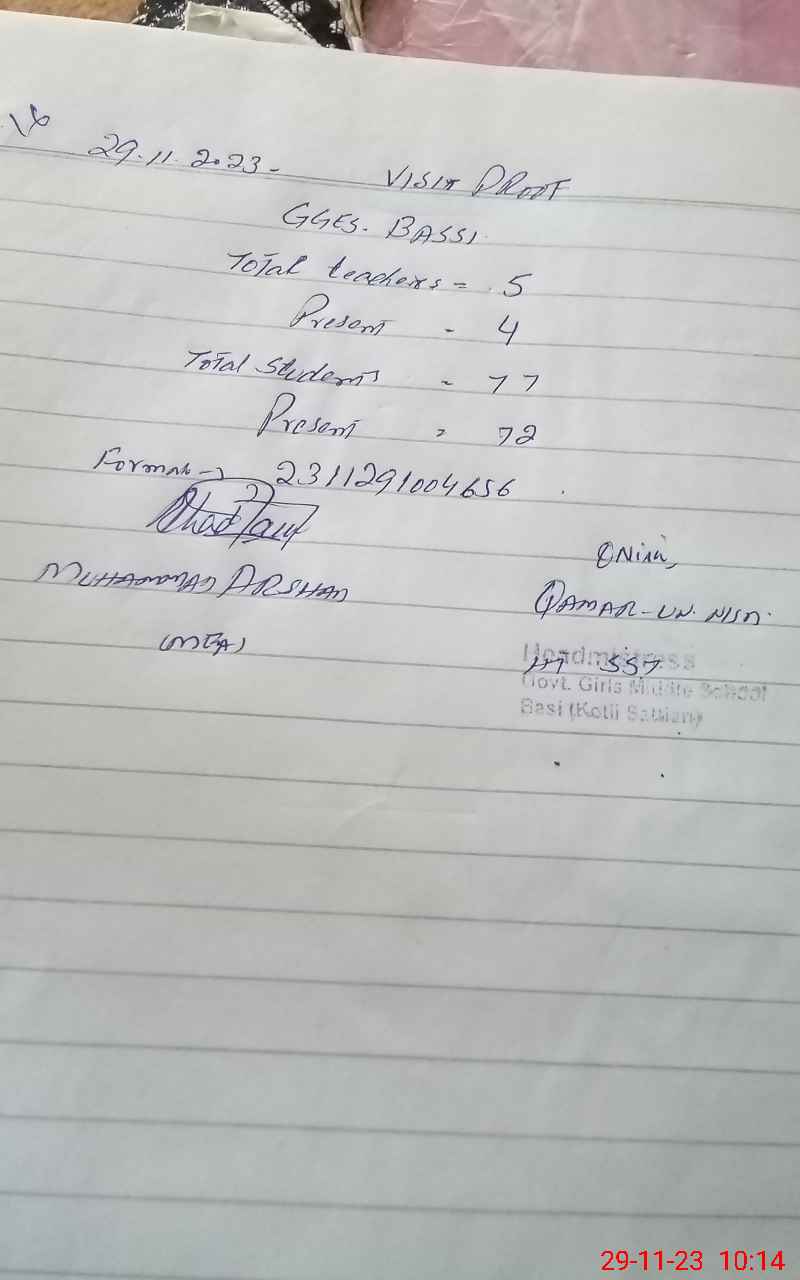 16 29.11.2023- VISIT PROOF
GGES. BASSI.
Total teachers = 5
Present - 4
Total Students = 77
Present = 72
Format → 2311291004656
MUHAMMAD ARSHAD
QAMAR-UN-NISA.
(MEA)
Headmistress
HT SST
Govt. Girls Middle School
Basi (Kotli Sattian)
29-11-23 10:14